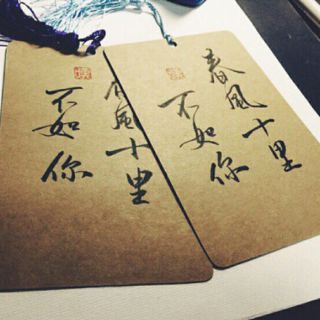 春風十里
不如你
風十里
不如你